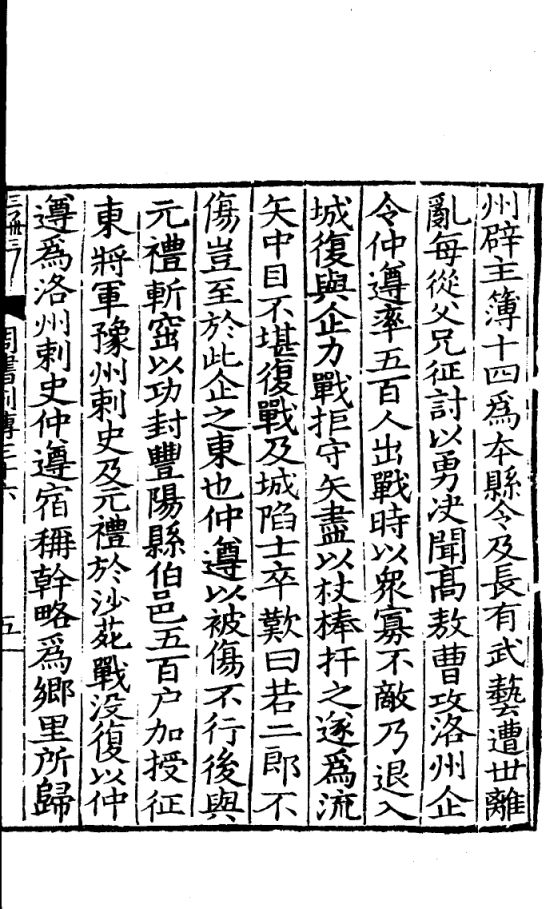 州辟主簿十四爲本縣令及長有武藝遭世離
亂每從父兄征討以勇决聞高敖曹攻洛州企
令仲遵率五百人出戰時以衆寡不敵乃退入
城復與企力戰拒守矢盡以杖棒扞之遂爲流
矢中目不堪復戰及城陷士卒歎曰若二郎不
傷豈至於此企之東也仲遵以被傷不行後與
元禮斬窋以功封豐陽縣伯邑五百户加授征
東將軍豫州刺史及元禮於沙苑戰没復以仲
遵爲洛州刺史仲遵宿稱幹略爲鄉里所歸
周書列傳三十六 五